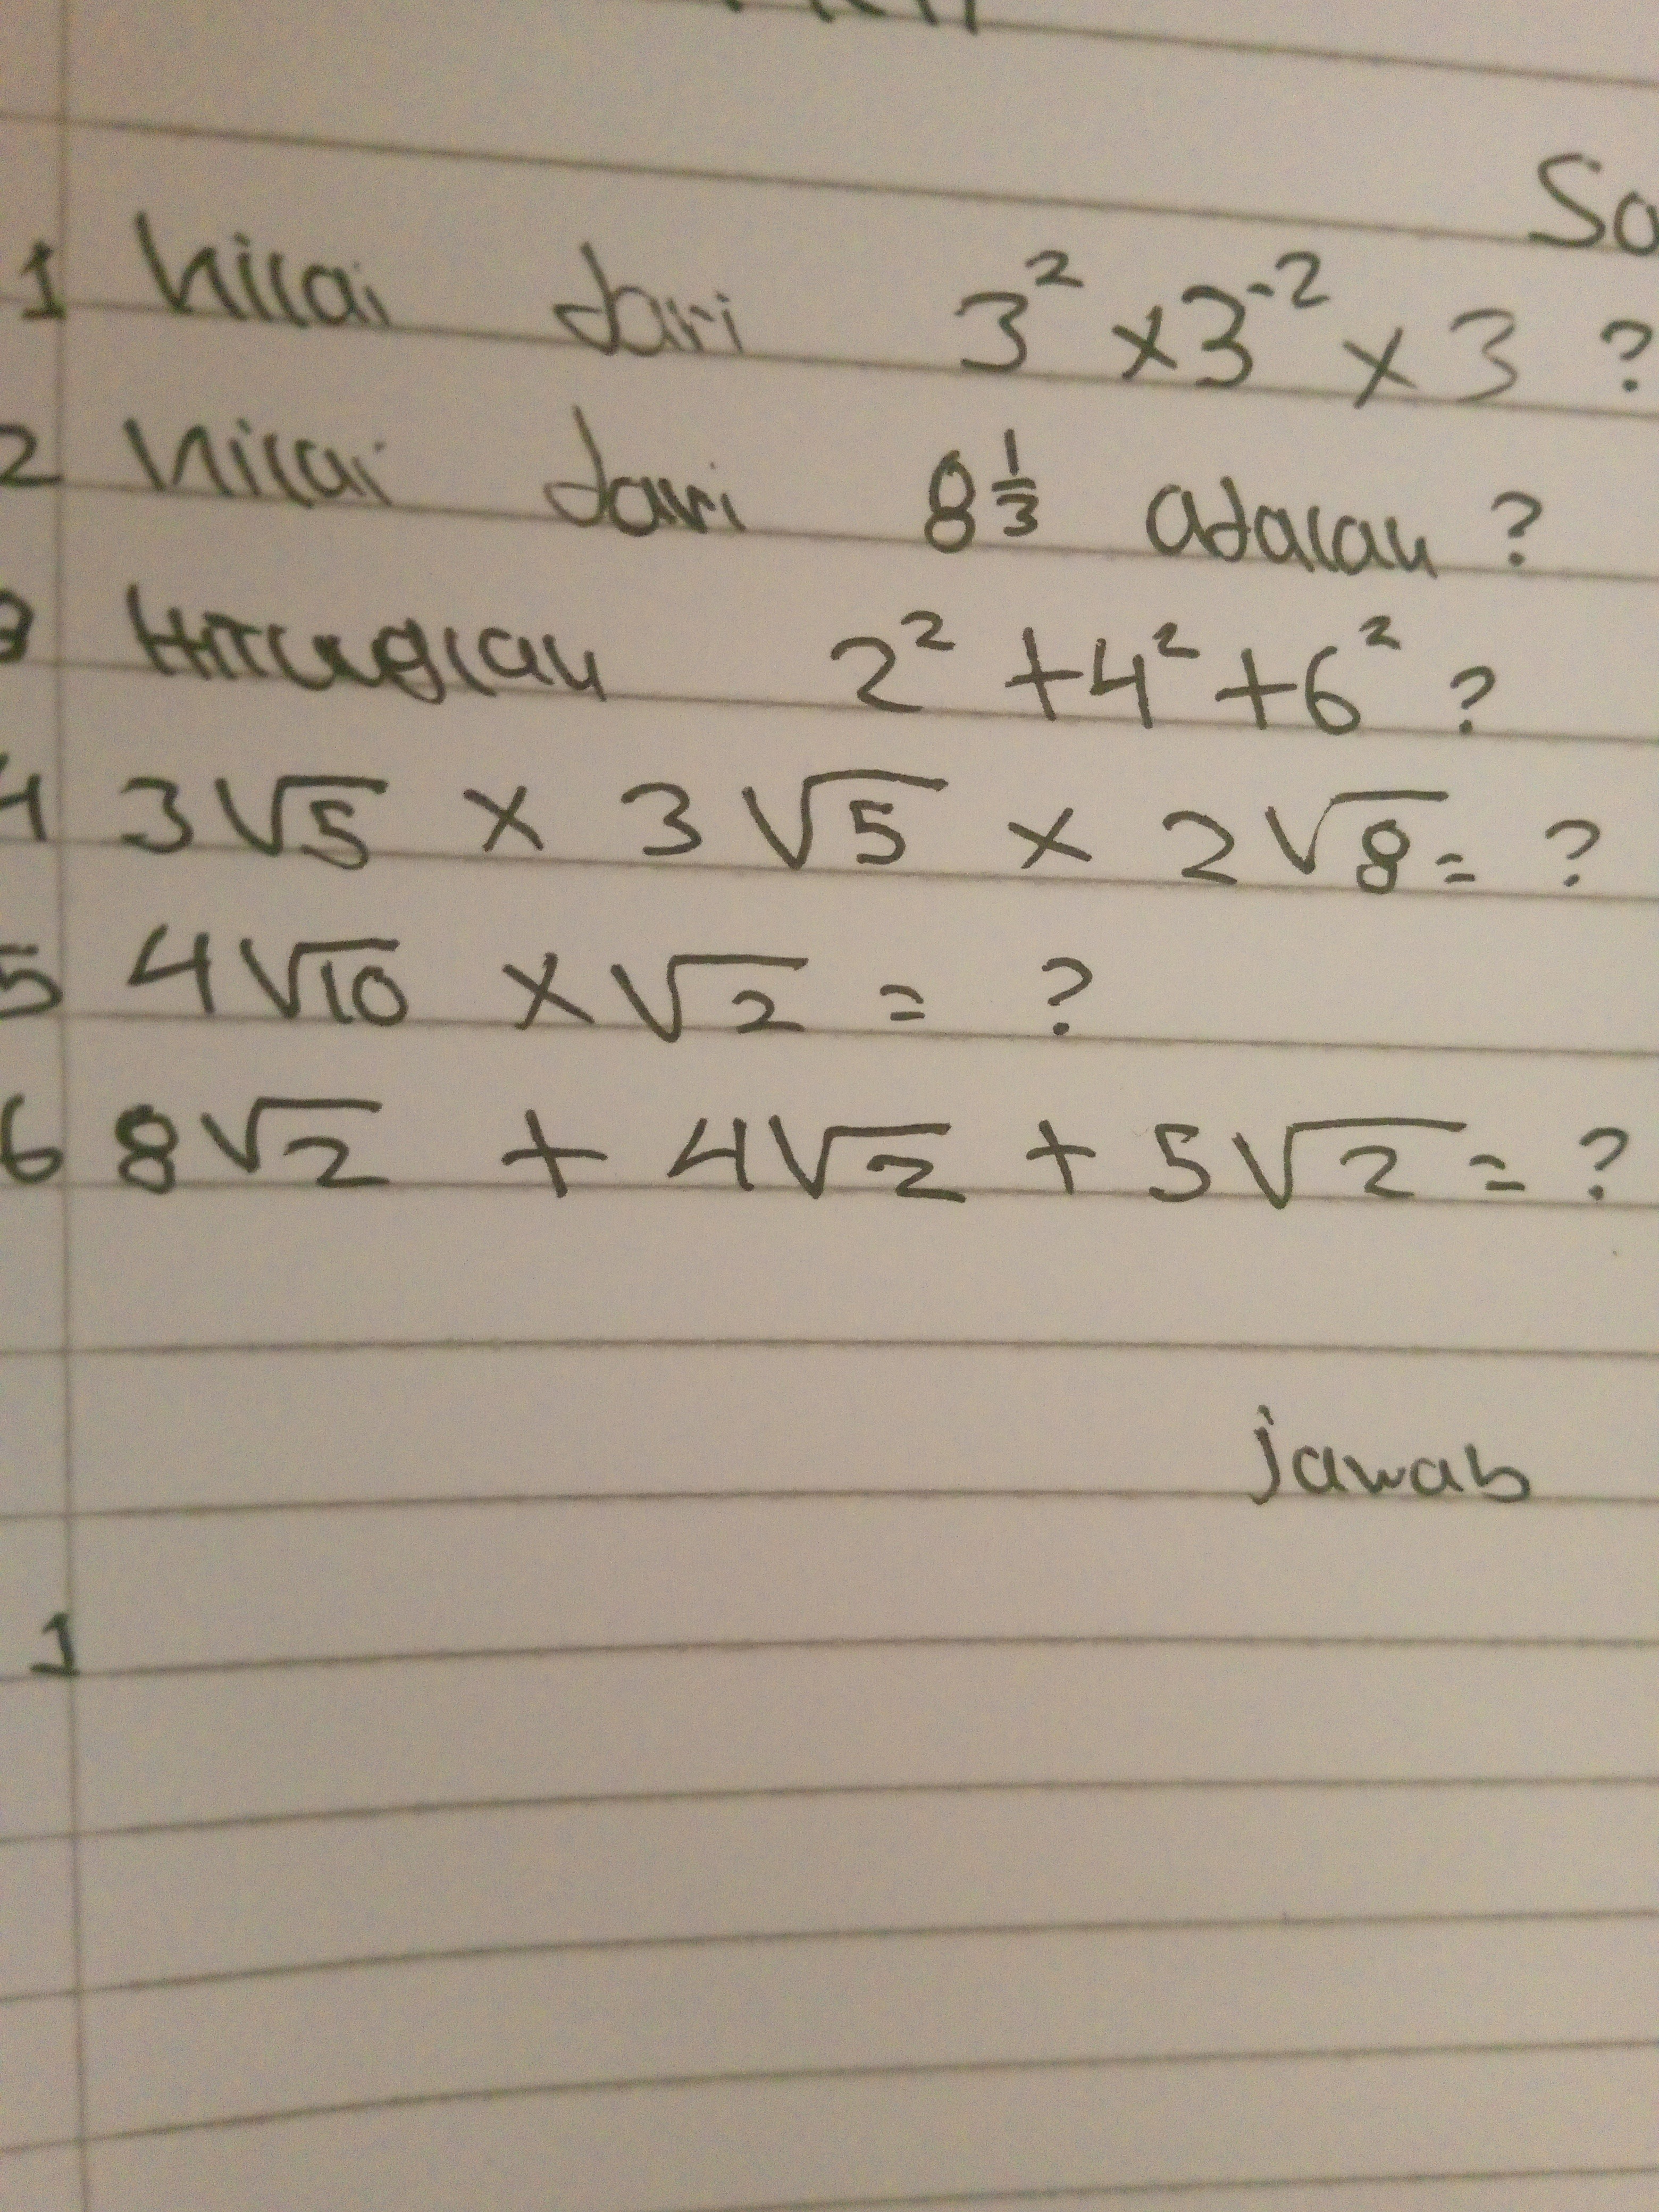 So
1 Nilai dari 3² × 3⁻² × 3 ?
2 Nilai dari 8^(1/3) adalah ?
3 Hitunglah 2² + 4² + 6² ?
4 3√5 × 3√5 × 2√8 = ?
5 4√10 × √2 = ?
6 8√2 + 4√2 + 5√2 = ?
jawab
1